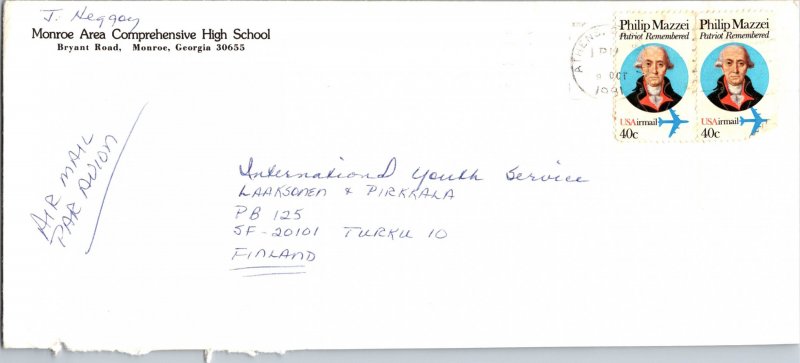 J. Heggoy
Monroe Area Comprehensive High School
Bryant Road, Monroe, Georgia 30655
ATHENS,
PM
9 OCT
1981
Philip Mazzei
Patriot Remembered
USAirmail
40c
Philip Mazzei
Patriot Remembered
USAirmail
40c
AIR MAIL
PAR AVION
International Youth Service
LAAKSONEN & PIRKKALA
PB 125
SF-20101 TURKU 10
FINLAND